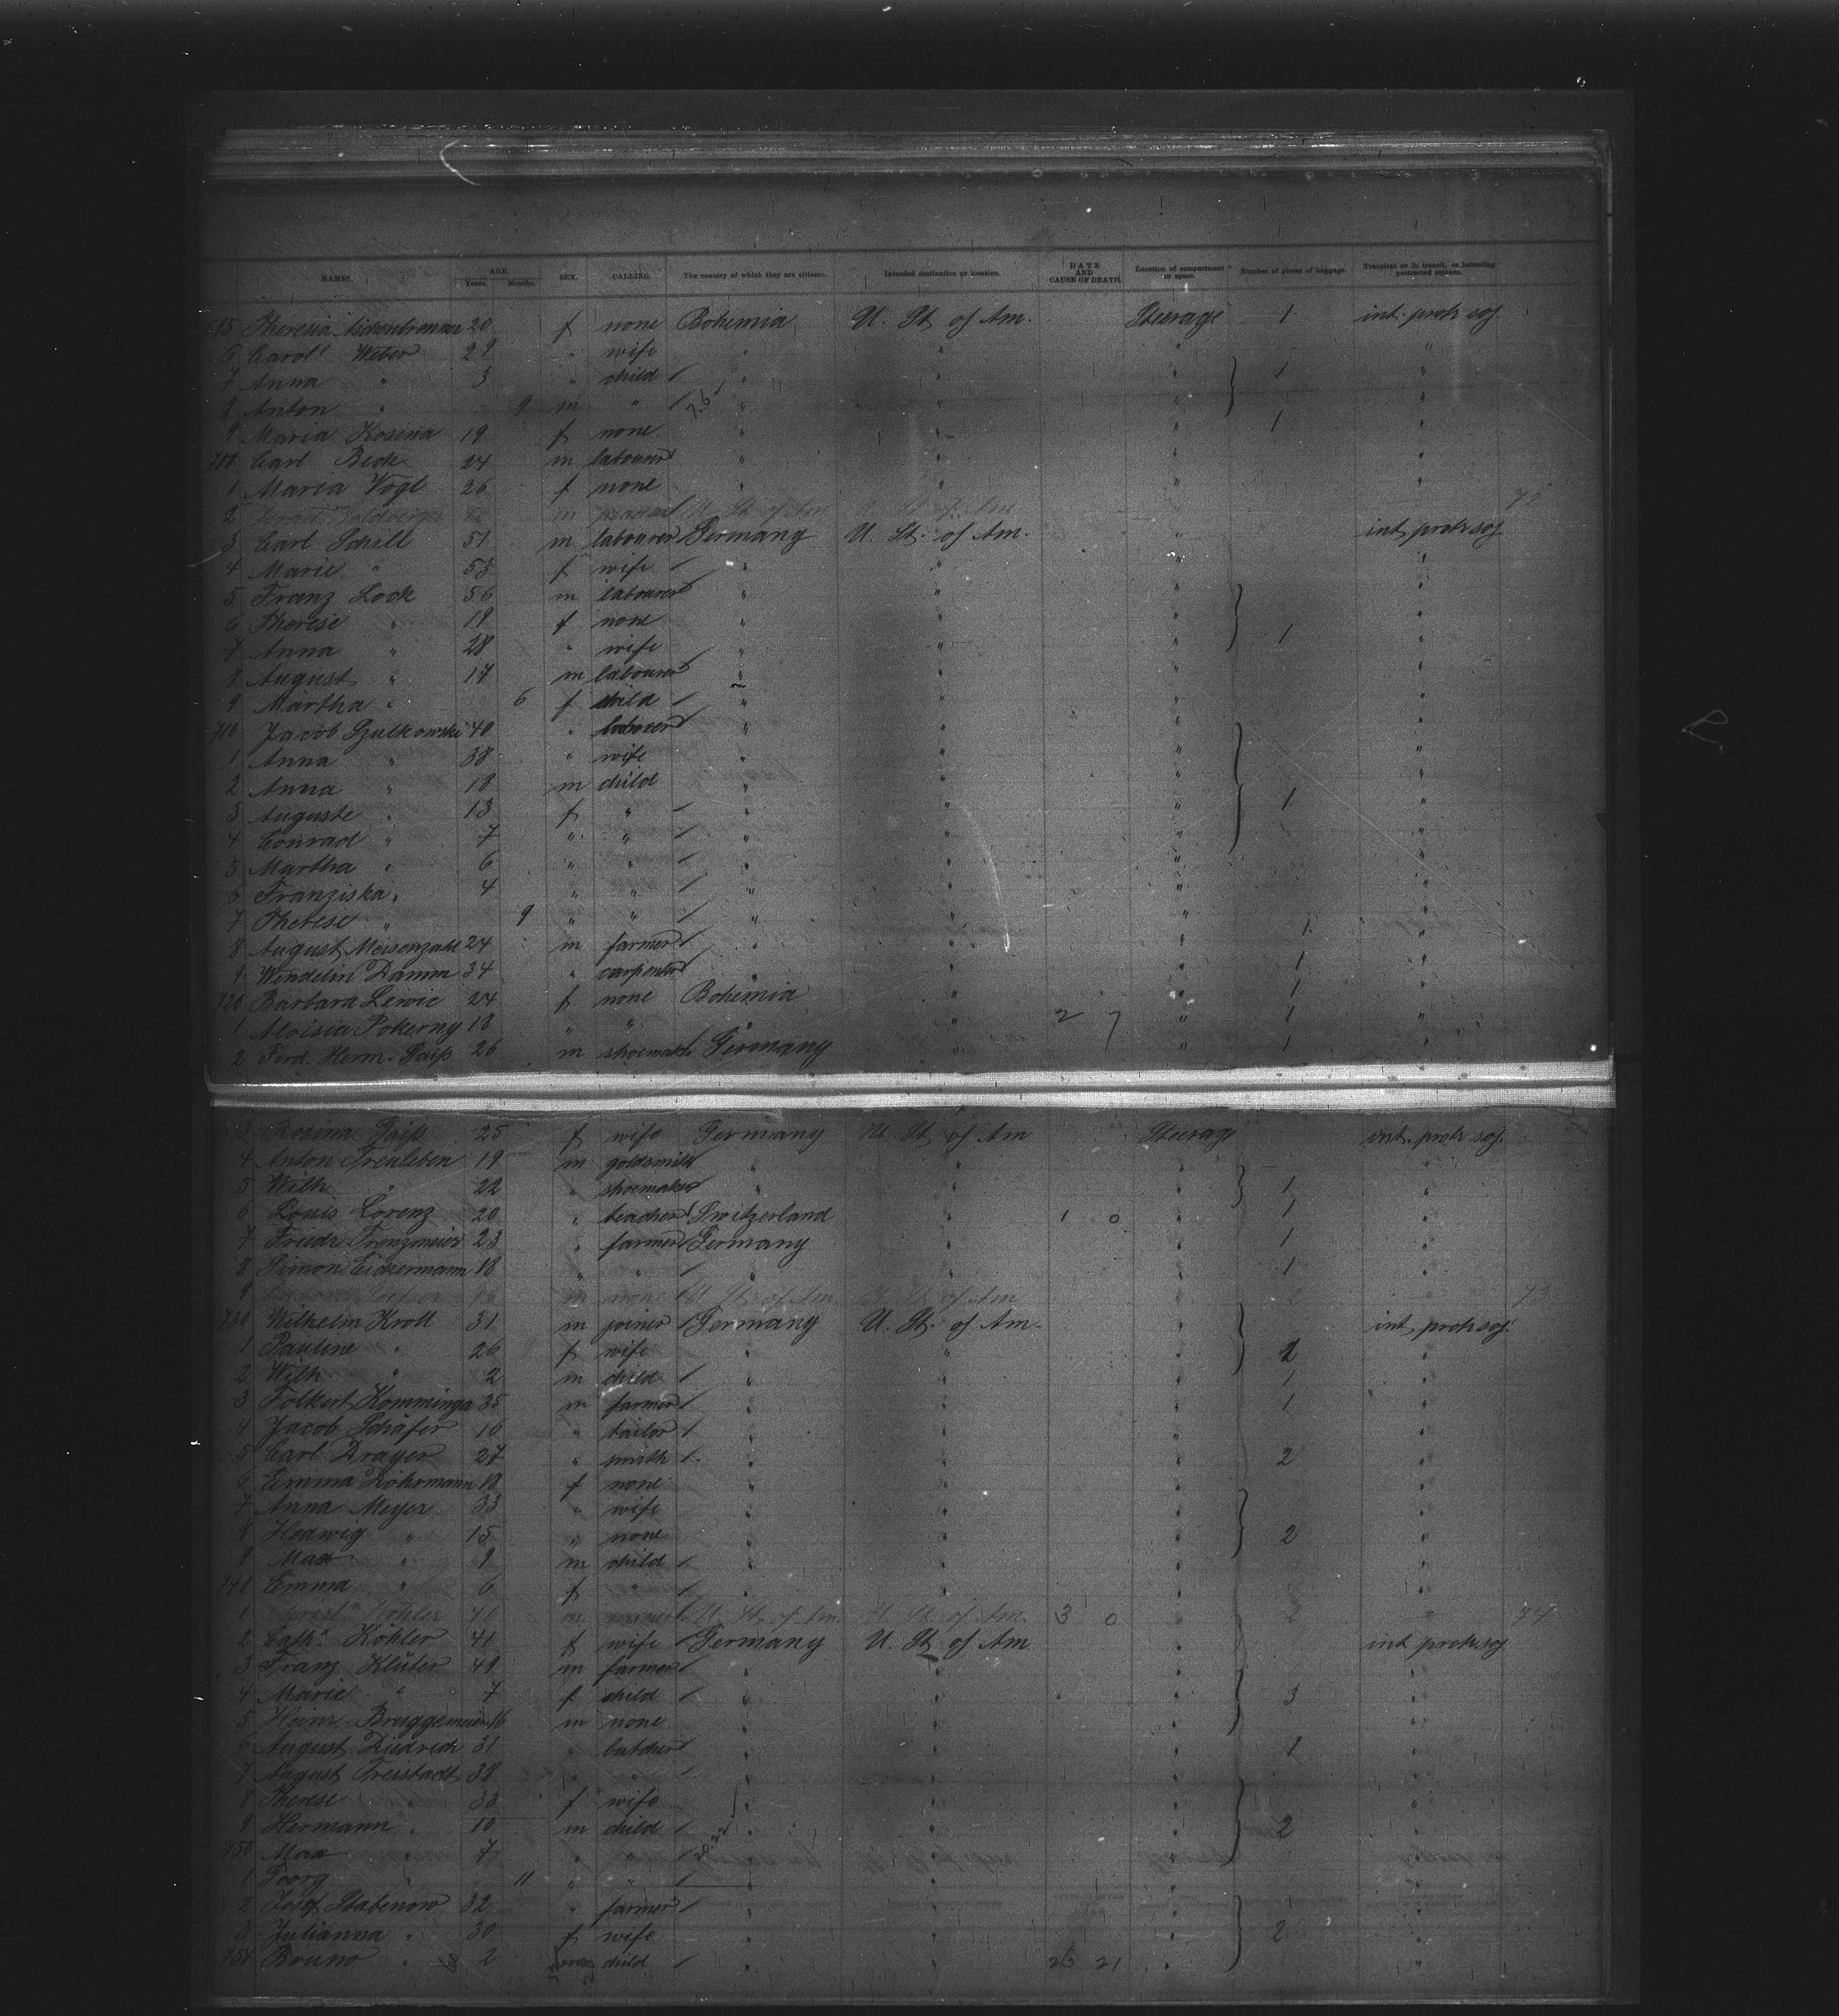 NAMES. AGE. Years. Months. SEX. CALLING. The country of which they are citizens. Intended destination or location. DATE AND CAUSE OF DEATH. Location of compartment or space. Number of pieces of baggage. Transient or in transit, or intending protracted sojourn.
Theresia 20 f none Bohemia U. St of Am. Steerage 1 int. protr soj.
6 Carol. Weber 29 " wife " " " "
7 Anna " 3 " child " " " 1 "
8 Anton " 9 m " " " " "
9 Maria Kosina 19 f none " " " 1 "
700 Carl Beck 24 m labourer " " " "
1 Maria Vogl 26 f none " " " "
2 m U. St of Am U. St of Am 72
3 Carl Schill 51 m labourer Germany U. St. of Am. " int protr soj
4 Marie " 53 f wife " " " "
5 Franz Lock 56 m labourer " " " "
6 Therese " 19 f none " " " "
7 Anna " 28 " wife " " " 1 "
8 August " 17 m labourer " " " "
9 Martha " 6 f child " " " "
710 Jacob Szulkowski 40 " labourer " " " "
1 Anna " 38 " wife " " " "
2 Anna " 18 m child " " " "
3 Auguste " 13 f " " " " 1 "
4 Conrad " 7 " " " " " "
5 Martha " 6 " " " " " "
6 Franziska " 4 " " " " " "
7 Therese " 9 " " " " " "
8 August Meisenzahl 24 m farmer " " " 1 "
9 Wendelin Damm 34 " carpenter " " " 1 "
720 Barbara Lewic 24 f none Bohemia " " 1 "
1 Aloisia Pokerny 18 " " " " 2 7 " 1 "
2 Ferd. Herm. Gaiß 26 m shoemaker Germany " " 1 "
3 Rosina Gaiß 25 f wife Germany U. St of Am Steerage int. protr soj.
4 Anton Freuleben 19 m goldsmith " " " "
5 Wilh. " 22 " shoemaker " " " 1 "
6 Louis Lorenz 20 " teacher Switzerland " 1 0 " 1 "
7 Friedr. Frenzmeier 23 " farmer Germany " " 1 "
8 Simon Eickermann 18 " " " " " 1 "
9 m none U. St. of Am. U. St of Am 73
730 Wilhelm Kroll 31 m joiner Germany U. St. of Am. int protr soj
1 Pauline " 26 f wife " " " "
2 Wilh. " 2 m child " " " 1 "
3 Folkert Komminga 35 m farmer " " " 1 "
4 Jacob Schäfer 16 " tailor " " " "
5 Carl Drager 27 " smith " " " 2 "
6 Emma Röhrmann 18 f none " " " "
7 Anna Meyer 33 " wife " " " "
8 Hedwig " 15 " none " " " 2 "
9 Max " 9 m child " " " "
740 Emma " 6 f " " " " "
1 Köhler 41 m U. St. of Am. U. St. of Am. 3 0 " 2 " 74
2 Cath. Köhler 41 f wife Germany U. St of Am " int protr soj
3 Franz Klüter 49 m farmer " " " "
4 Marie " 7 f child " " " 3 "
5 Heinr. Bruggemeier 16 m none " " " "
6 August Diedrich 31 " butcher " " " 1 "
7 August Freistadt 38 " " " " " "
8 Therese " 33 f wife " " " "
9 Hermann " 10 m child " " " 2 "
750 Max " 7 " " " " " "
1 Georg " 11 " " " " " "
2 Josef Stabenow 32 " farmer " " " "
3 Julianna " 30 f wife " " " 2 "
754 Bruno " 2 child " " 26 21 " "